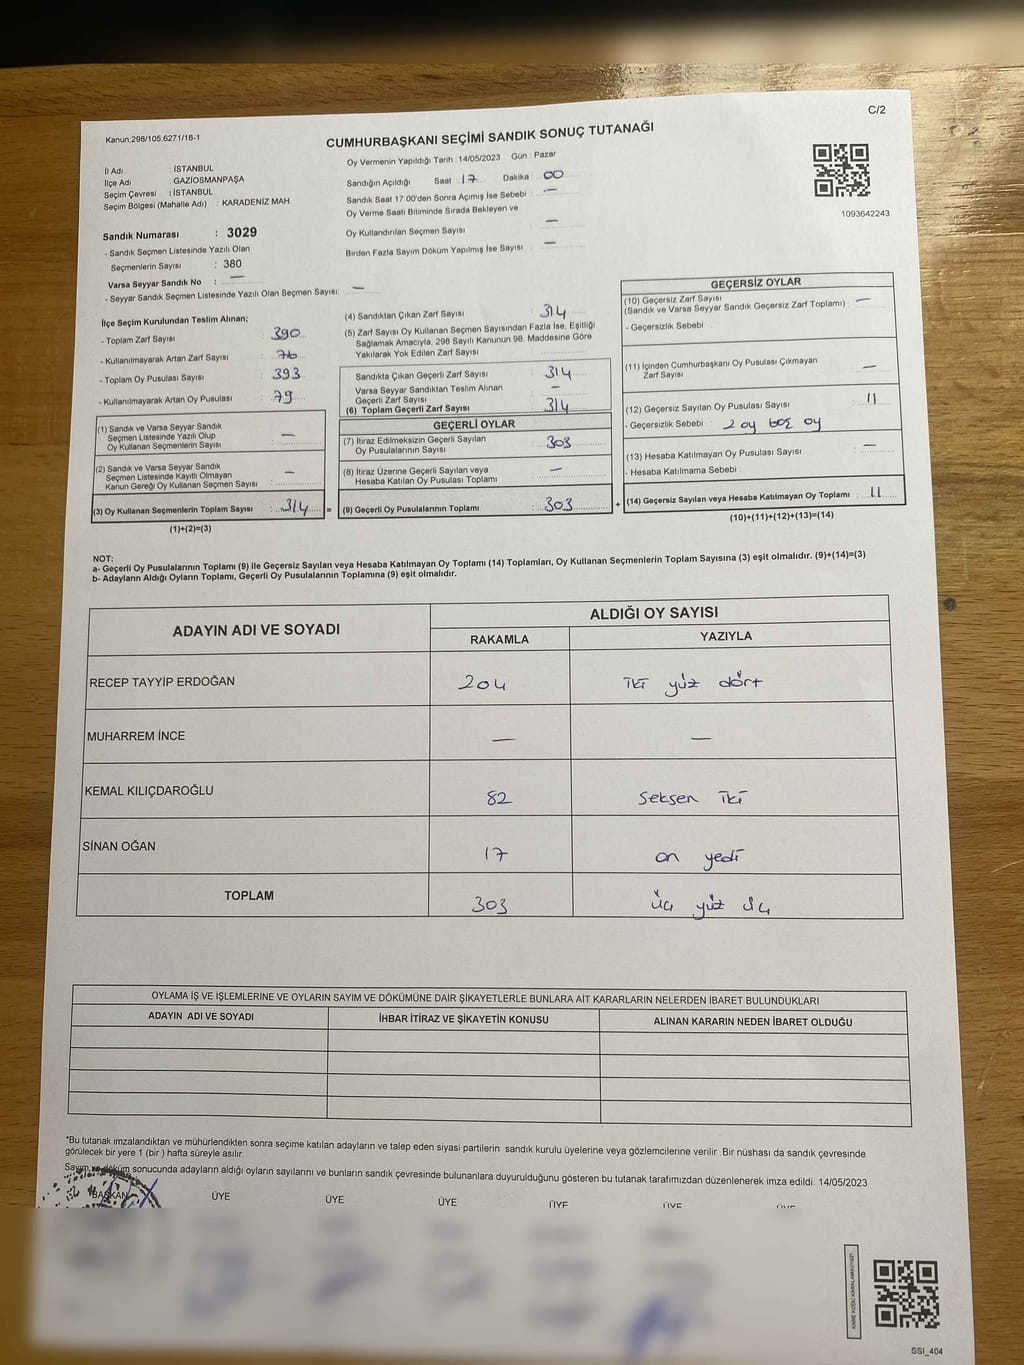 C/2
Kanun.298/105.6271/18-1
CUMHURBAŞKANI SEÇİMİ SANDIK SONUÇ TUTANAĞI
İl Adı : İSTANBUL
İlçe Adı : GAZİOSMANPAŞA
Seçim Çevresi : İSTANBUL
Seçim Bölgesi (Mahalle Adı) : KARADENİZ MAH.
Sandık Numarası : 3029
- Sandık Seçmen Listesinde Yazılı Olan
Seçmenlerin Sayısı : 380
Varsa Seyyar Sandık No : —
- Seyyar Sandık Seçmen Listesinde Yazılı Olan Seçmen Sayısı: —
Oy Vermenin Yapıldığı Tarih : 14/05/2023 Gün : Pazar
Sandığın Açıldığı Saat : 17 Dakika : 00
Sandık Saat 17.00'den Sonra Açımış İse Sebebi : —
Oy Verme Saati Bitiminde Sırada Bekleyen ve
Oy Kullandırılan Seçmen Sayısı : —
Birden Fazla Sayım Döküm Yapılmış İse Sayısı : —
1093642243
İlçe Seçim Kurulundan Teslim Alınan;
- Toplam Zarf Sayısı : 390
- Kullanılmayarak Artan Zarf Sayısı : 76
- Toplam Oy Pusulası Sayısı : 393
- Kullanılmayarak Artan Oy Pusulası : 79
(1) Sandık ve Varsa Seyyar Sandık
Seçmen Listesinde Yazılı Olup
Oy Kullanan Seçmenlerin Sayısı : —
(2) Sandık ve Varsa Seyyar Sandık
Seçmen Listesinde Kayıtlı Olmayan
Kanun Gereği Oy Kullanan Seçmen Sayısı : —
(3) Oy Kullanan Seçmenlerin Toplam Sayısı : 314 =
(1)+(2)=(3)
(4) Sandıktan Çıkan Zarf Sayısı : 314
(5) Zarf Sayısı Oy Kullanan Seçmen Sayısından Fazla İse, Eşitliği
Sağlamak Amacıyla, 298 Sayılı Kanunun 98. Maddesine Göre
Yakılarak Yok Edilen Zarf Sayısı :
Sandıkta Çıkan Geçerli Zarf Sayısı : 314
Varsa Seyyar Sandıktan Teslim Alınan
Geçerli Zarf Sayısı : —
(6) Toplam Geçerli Zarf Sayısı : 314
GEÇERLİ OYLAR
(7) İtiraz Edilmeksizin Geçerli Sayılan
Oy Pusulalarının Sayısı : 303
(8) İtiraz Üzerine Geçerli Sayılan veya
Hesaba Katılan Oy Pusulası Toplamı : —
(9) Geçerli Oy Pusulalarının Toplamı : 303 +
GEÇERSİZ OYLAR
(10) Geçersiz Zarf Sayısı
(Sandık ve Varsa Seyyar Sandık Geçersiz Zarf Toplamı) : —
- Geçersizlik Sebebi :
(11) İçinden Cumhurbaşkanı Oy Pusulası Çıkmayan
Zarf Sayısı : —
(12) Geçersiz Sayılan Oy Pusulası Sayısı : 11
- Geçersizlik Sebebi : 2 oy boş oy
(13) Hesaba Katılmayan Oy Pusulası Sayısı : —
- Hesaba Katılmama Sebebi :
(14) Geçersiz Sayılan veya Hesaba Katılmayan Oy Toplamı : 11
(10)+(11)+(12)+(13)=(14)
NOT:
a- Geçerli Oy Pusulalarının Toplamı (9) ile Geçersiz Sayılan veya Hesaba Katılmayan Oy Toplamı (14) Toplamları, Oy Kullanan Seçmenlerin Toplam Sayısına (3) eşit olmalıdır. (9)+(14)=(3)
b- Adayların Aldığı Oyların Toplamı, Geçerli Oy Pusulalarının Toplamına (9) eşit olmalıdır.
ADAYIN ADI VE SOYADI ALDIĞI OY SAYISI
RAKAMLA YAZIYLA
RECEP TAYYİP ERDOĞAN 204 iki yüz dört
MUHARREM İNCE — —
KEMAL KILIÇDAROĞLU 82 Seksen iki
SİNAN OĞAN 17 on yedi
TOPLAM 303 üç yüz üç
OYLAMA İŞ VE İŞLEMLERİNE VE OYLARIN SAYIM VE DÖKÜMÜNE DAİR ŞİKAYETLERLE BUNLARA AİT KARARLARIN NELERDEN İBARET BULUNDUKLARI
ADAYIN ADI VE SOYADI İHBAR İTİRAZ VE ŞİKAYETİN KONUSU ALINAN KARARIN NEDEN İBARET OLDUĞU
*Bu tutanak imzalandıktan ve mühürlendikten sonra seçime katılan adayların ve talep eden siyasi partilerin sandık kurulu üyelerine veya gözlemcilerine verilir. Bir nüshası da sandık çevresinde
görülecek bir yere 1 (bir ) hafta süreyle asılır.
Sayım ve döküm sonucunda adayların aldığı oyların sayılarını ve bunların sandık çevresinde bulunanlara duyurulduğunu gösteren bu tutanak tarafımızdan düzenlenerek imza edildi. 14/05/2023
BAŞKAN ÜYE ÜYE ÜYE ÜYE ÜYE ÜYE
KARE KODU KARALAMAYINIZ!
SSI_404